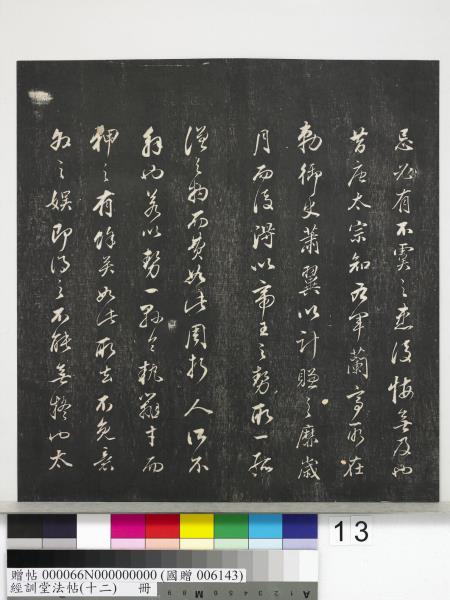 忌必有不虞之患後悔無及也
昔唐太宗知右軍蘭亭所在
勅御史蕭翼以計賺之靡歲
月而後得以帝王之勢取一
之物而費如此周折人所不
解也若以勢一縣令執辯才而
押之有餘矣如此取去不免意
外之娛即得之不能無也太
13
贈帖 000066N000000000 (國贈 006143)
經訓堂法帖(十二) 冊